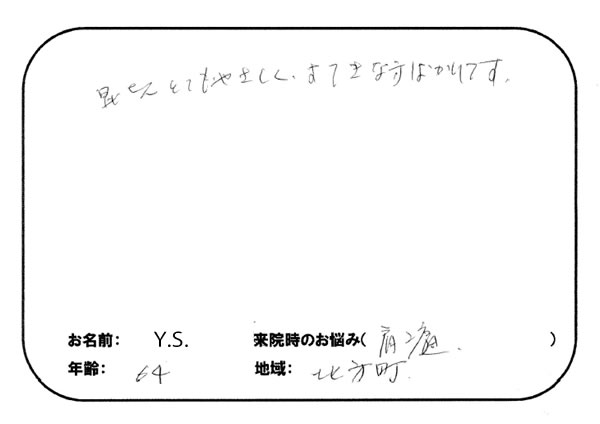 皆さん とてもやさしく、すてきな方ばかりです。
お名前： Y.S. 来院時のお悩み( 肩こり、 )
年齢： 64 地域： 北方町